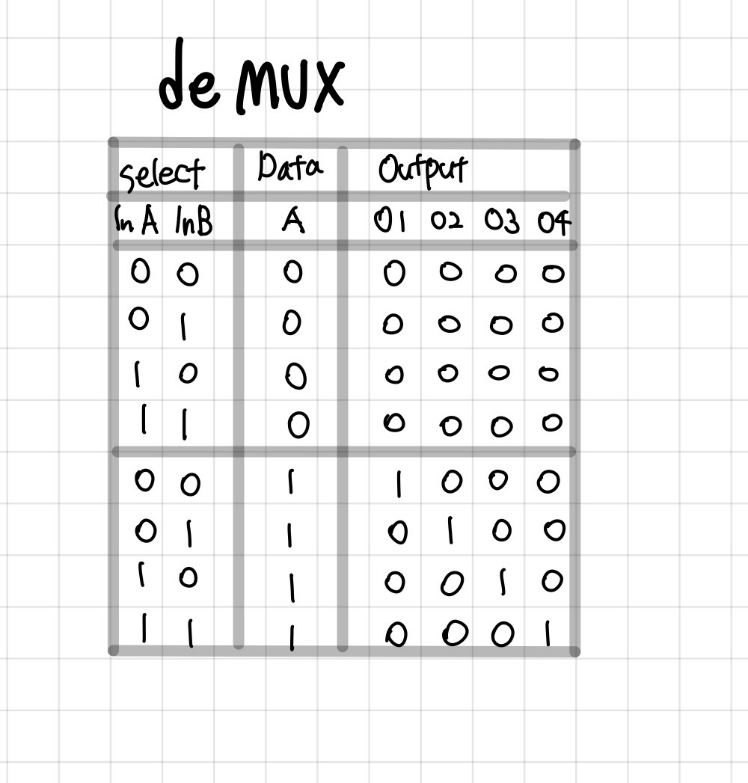 de MUX
select Data Output
In A InB A O1 O2 O3 O4
0 0 0 0 0 0 0
0 1 0 0 0 0 0
1 0 0 0 0 0 0
1 1 0 0 0 0 0
0 0 1 1 0 0 0
0 1 1 0 1 0 0
1 0 1 0 0 1 0
1 1 1 0 0 0 1